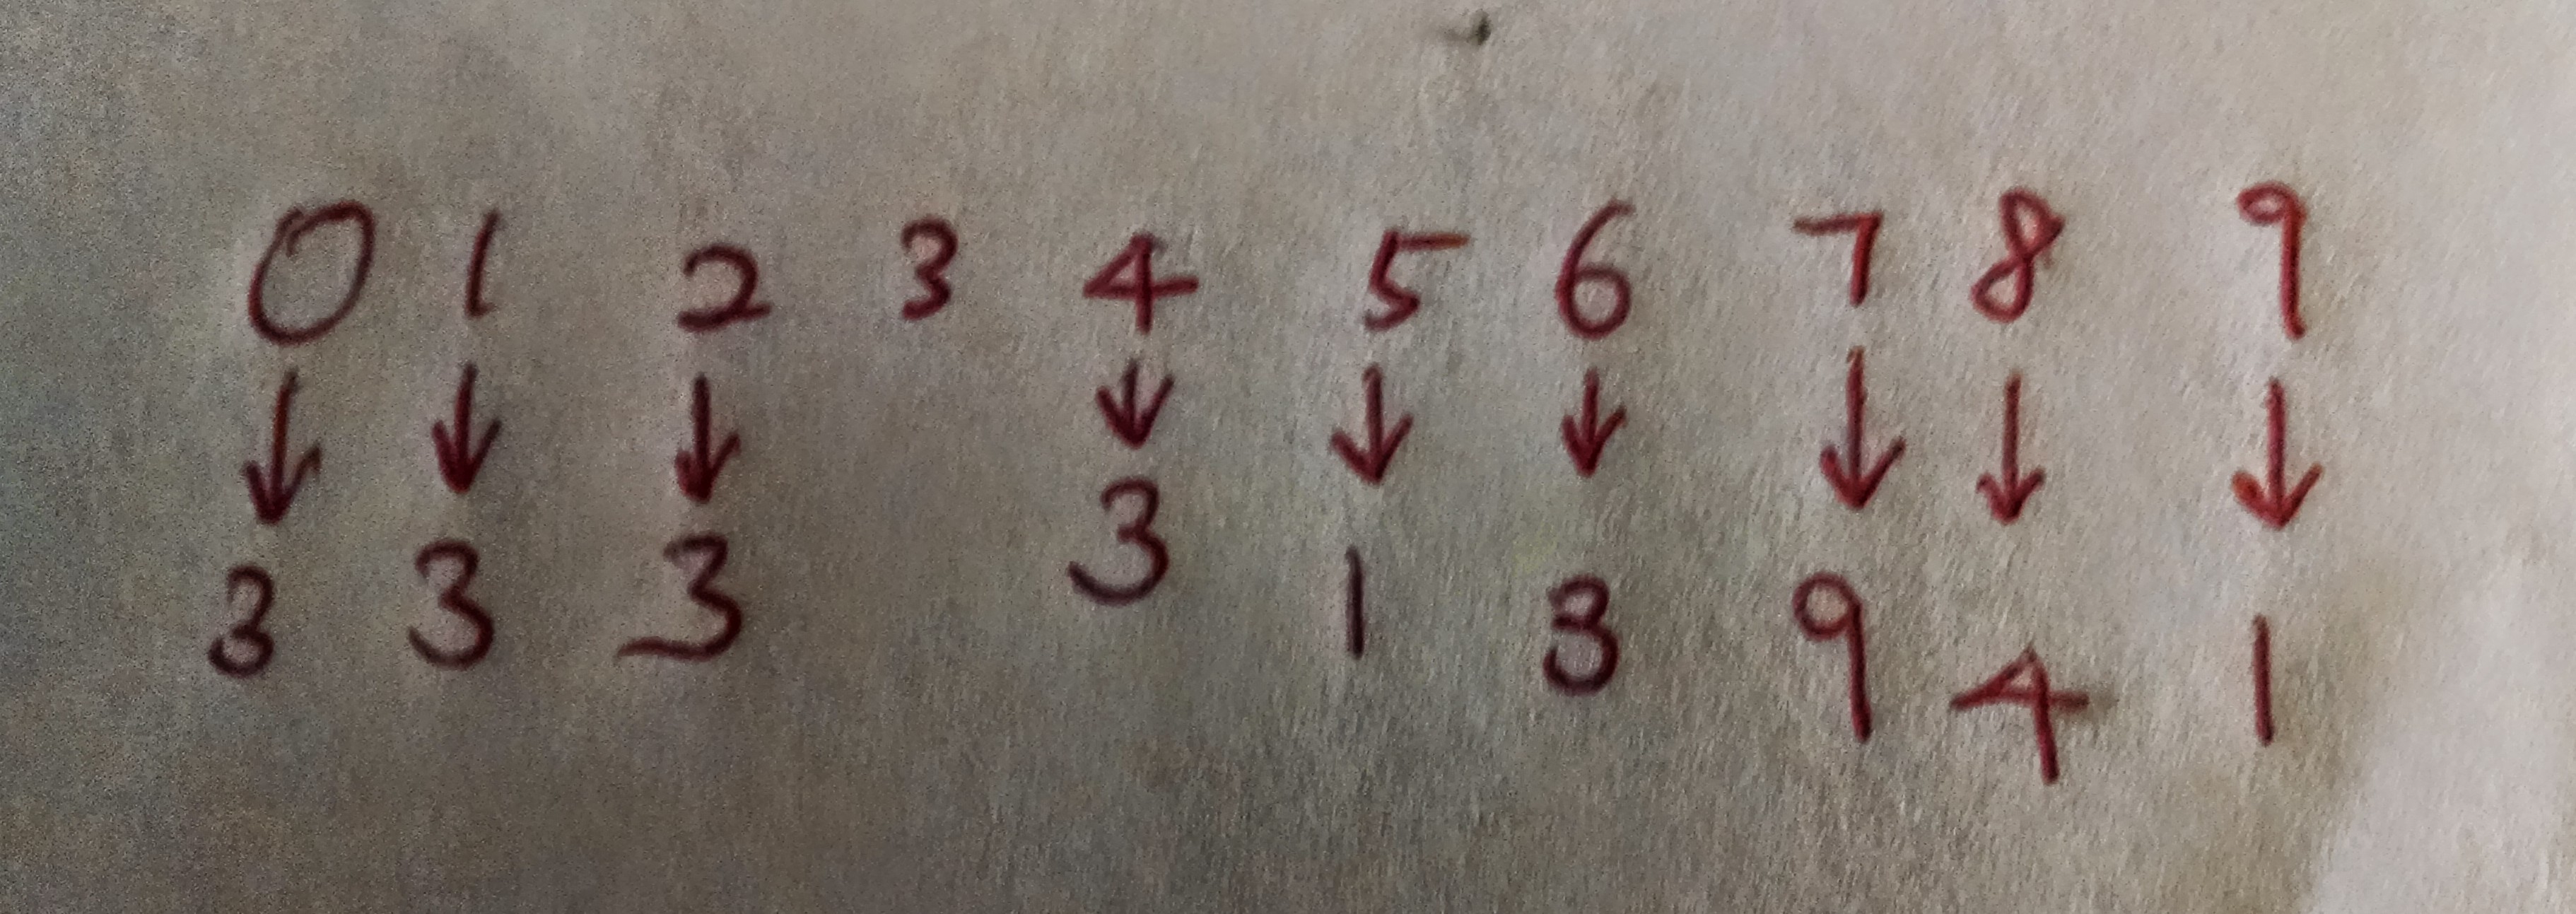 0 1 2 3 4 5 6 7 8 9
↓ ↓ ↓ ↓ ↓ ↓ ↓ ↓ ↓
3 3 3 3 1 3 9 4 1